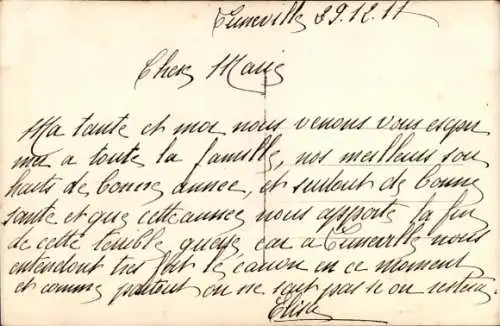 Cuneville 29.12.17
Cher Marie
Ma tante et moi nous venons vous expri
mer a toute la famille, nos meilleurs sou
haits de bonne année, et surtout de bonne
santé et que cette année nous apporte la fin
de cette terible guerre car a Cuneville nous
entendont tres fort le canon en ce moment
et comme partout on ne sait pas se on restera
Elisa